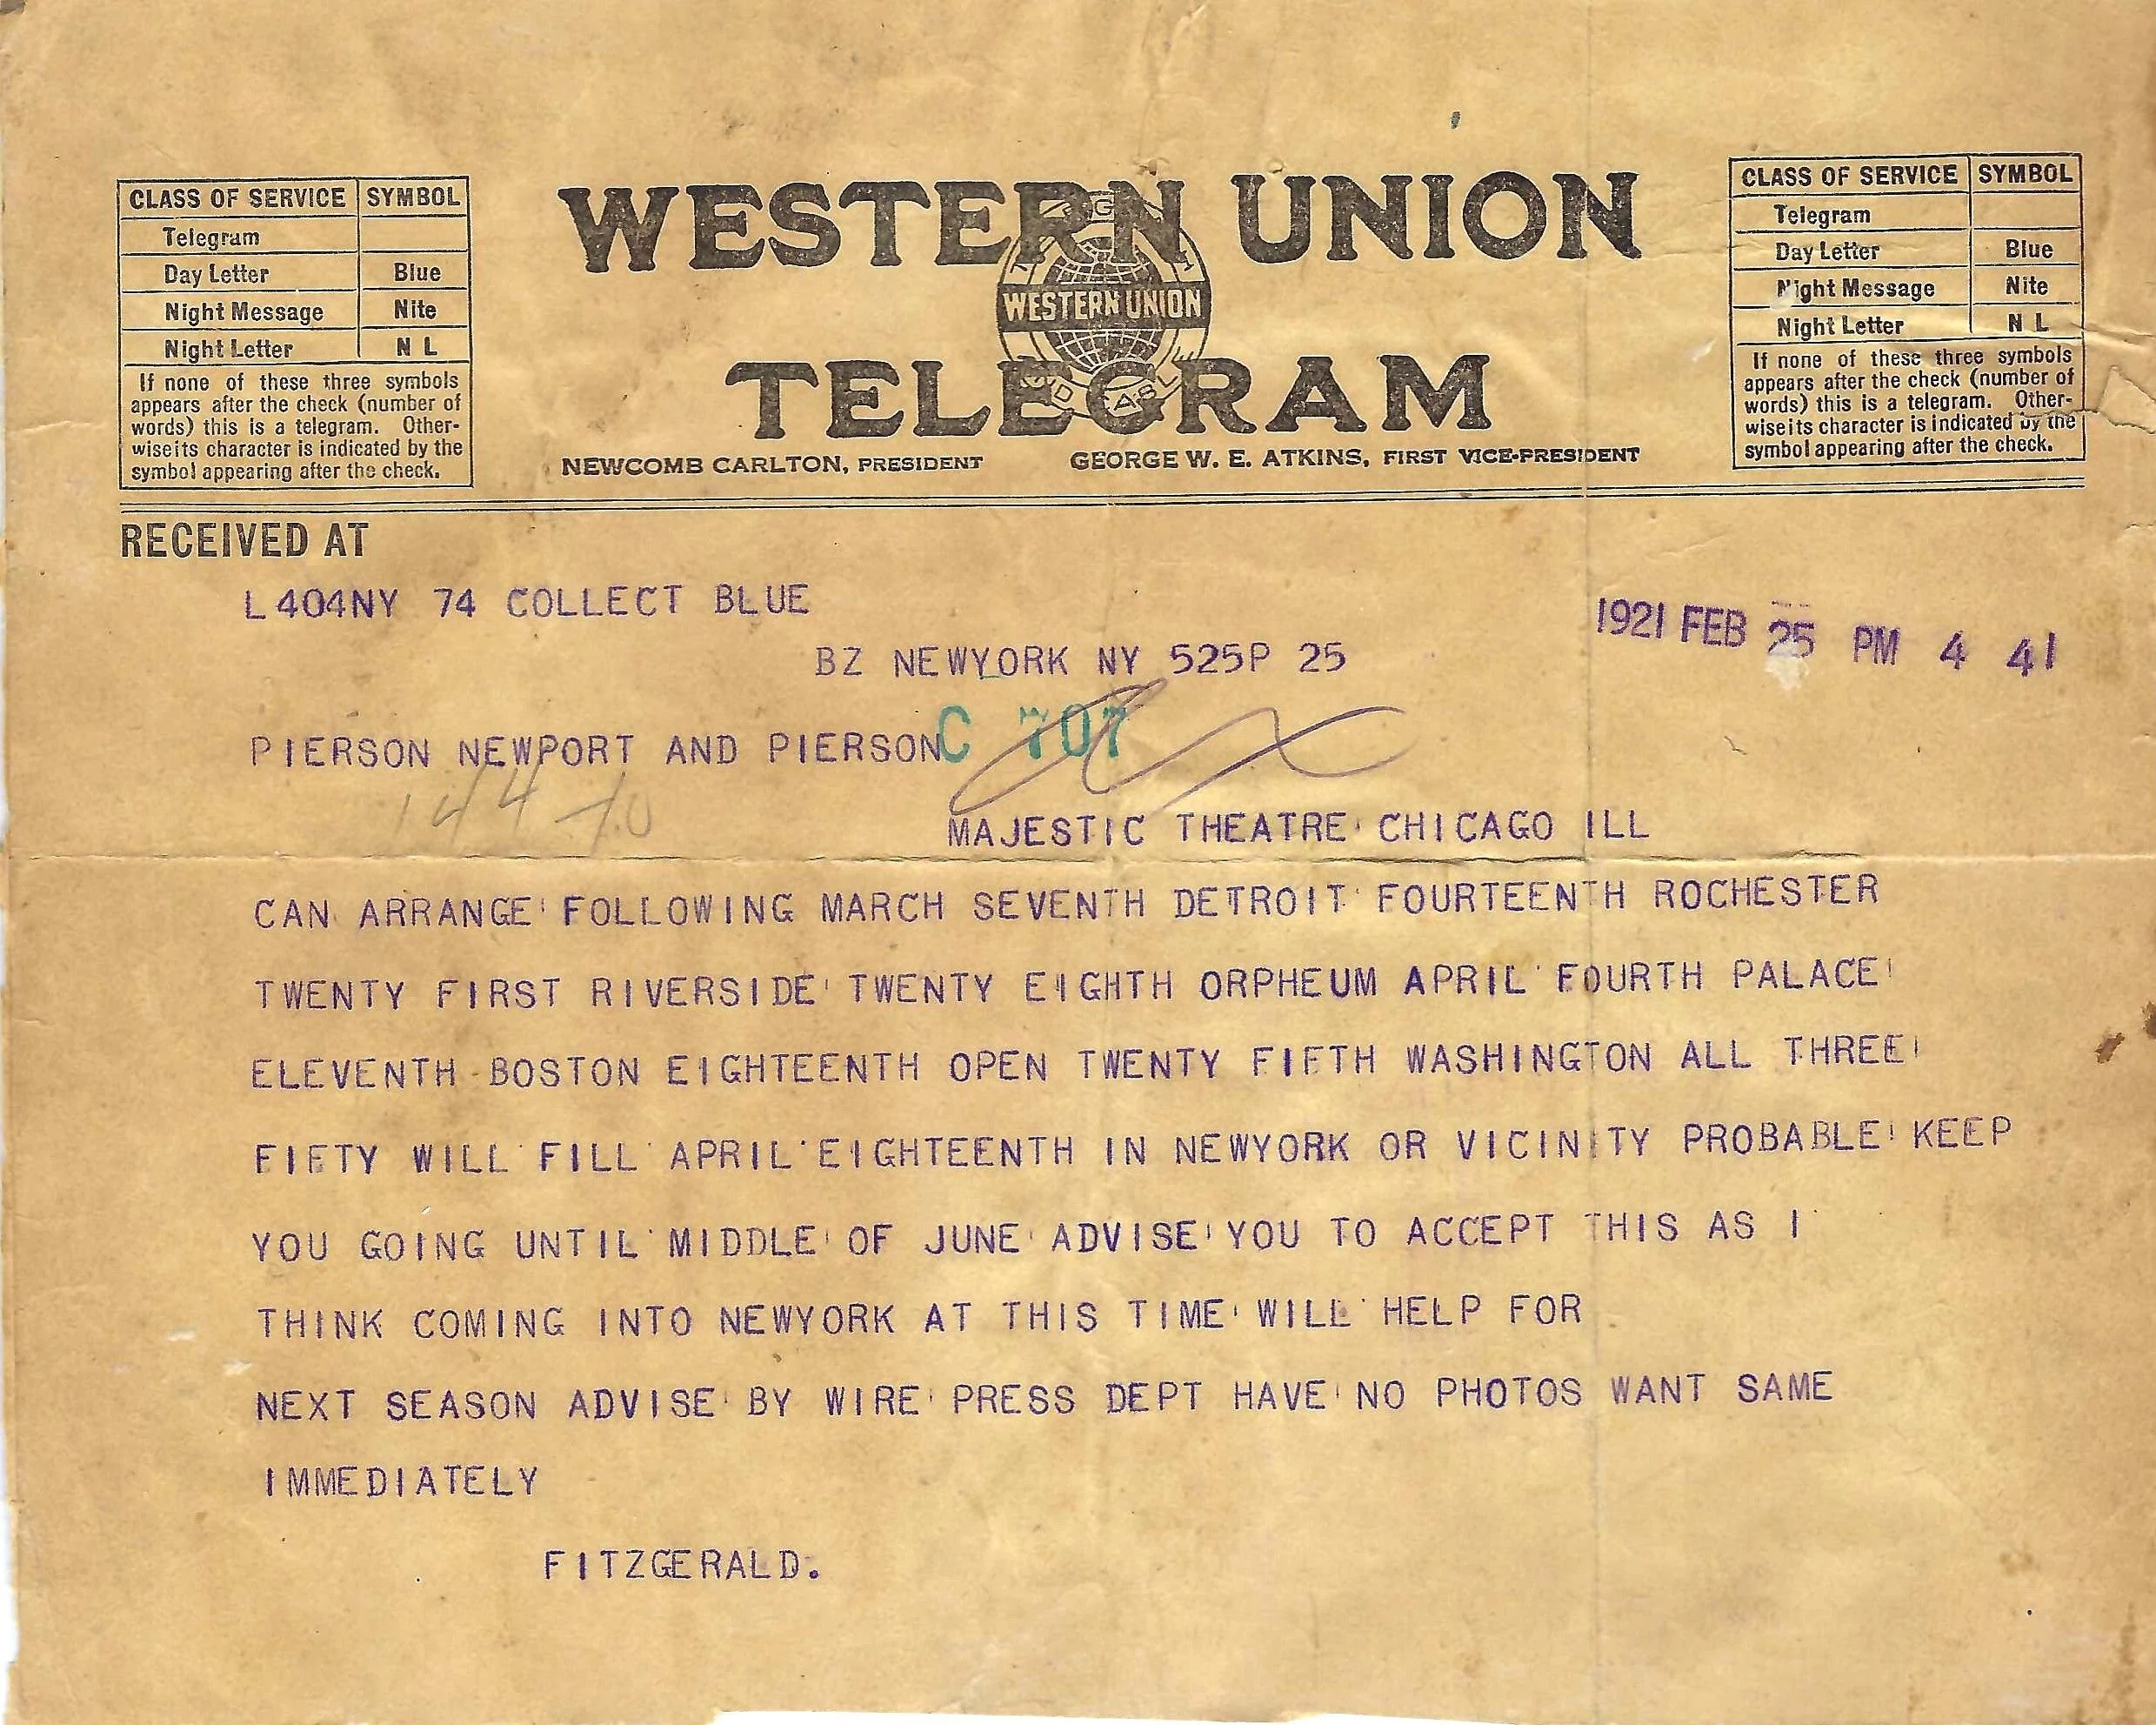 CLASS OF SERVICE SYMBOL
Telegram
Day Letter Blue
Night Message Nite
Night Letter N L
If none of these three symbols
appears after the check (number of
words) this is a telegram. Other-
wise its character is indicated by the
symbol appearing after the check.
WESTERN UNION
WESTERN UNION
TELEGRAM
NEWCOMB CARLTON, PRESIDENT GEORGE W. E. ATKINS, FIRST VICE-PRESIDENT
CLASS OF SERVICE SYMBOL
Telegram
Day Letter Blue
Night Message Nite
Night Letter N L
If none of these three symbols
appears after the check (number of
words) this is a telegram. Other-
wise its character is indicated by the
symbol appearing after the check.
RECEIVED AT
L404NY 74 COLLECT BLUE
1921 FEB 25 PM 4 41
BZ NEWYORK NY 525P 25
PIERSON NEWPORT AND PIERSON C 707
144
MAJESTIC THEATRE CHICAGO ILL
CAN ARRANGE FOLLOWING MARCH SEVENTH DETROIT FOURTEENTH ROCHESTER
TWENTY FIRST RIVERSIDE TWENTY EIGHTH ORPHEUM APRIL FOURTH PALACE
ELEVENTH BOSTON EIGHTEENTH OPEN TWENTY FIFTH WASHINGTON ALL THREE
FIFTY WILL FILL APRIL EIGHTEENTH IN NEWYORK OR VICINITY PROBABLE KEEP
YOU GOING UNTIL MIDDLE OF JUNE ADVISE YOU TO ACCEPT THIS AS I
THINK COMING INTO NEWYORK AT THIS TIME WILL HELP FOR
NEXT SEASON ADVISE BY WIRE PRESS DEPT HAVE NO PHOTOS WANT SAME
IMMEDIATELY
FITZGERALD.